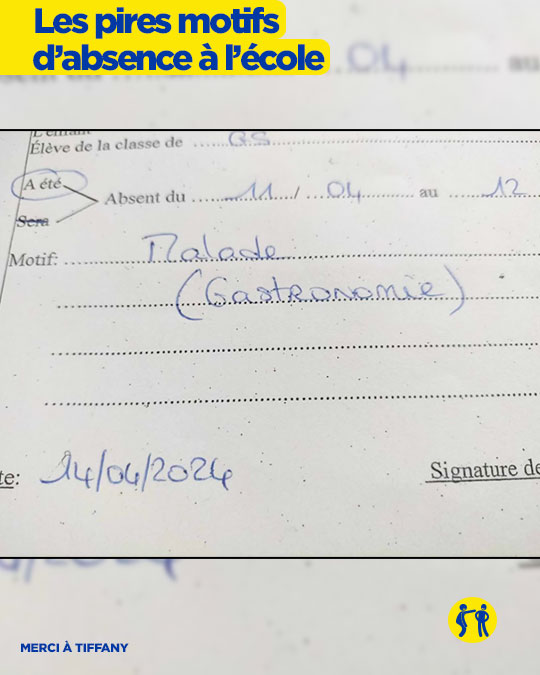 Les pires motifs
d'absence à l'école
04 au
L'enfant
Élève de la classe de GS
A été
Absent du 11 / 04 au 12
Sera
Motif: Malade
(Gastronomie)
te: 14/04/2024
Signature de
MERCI À TIFFANY